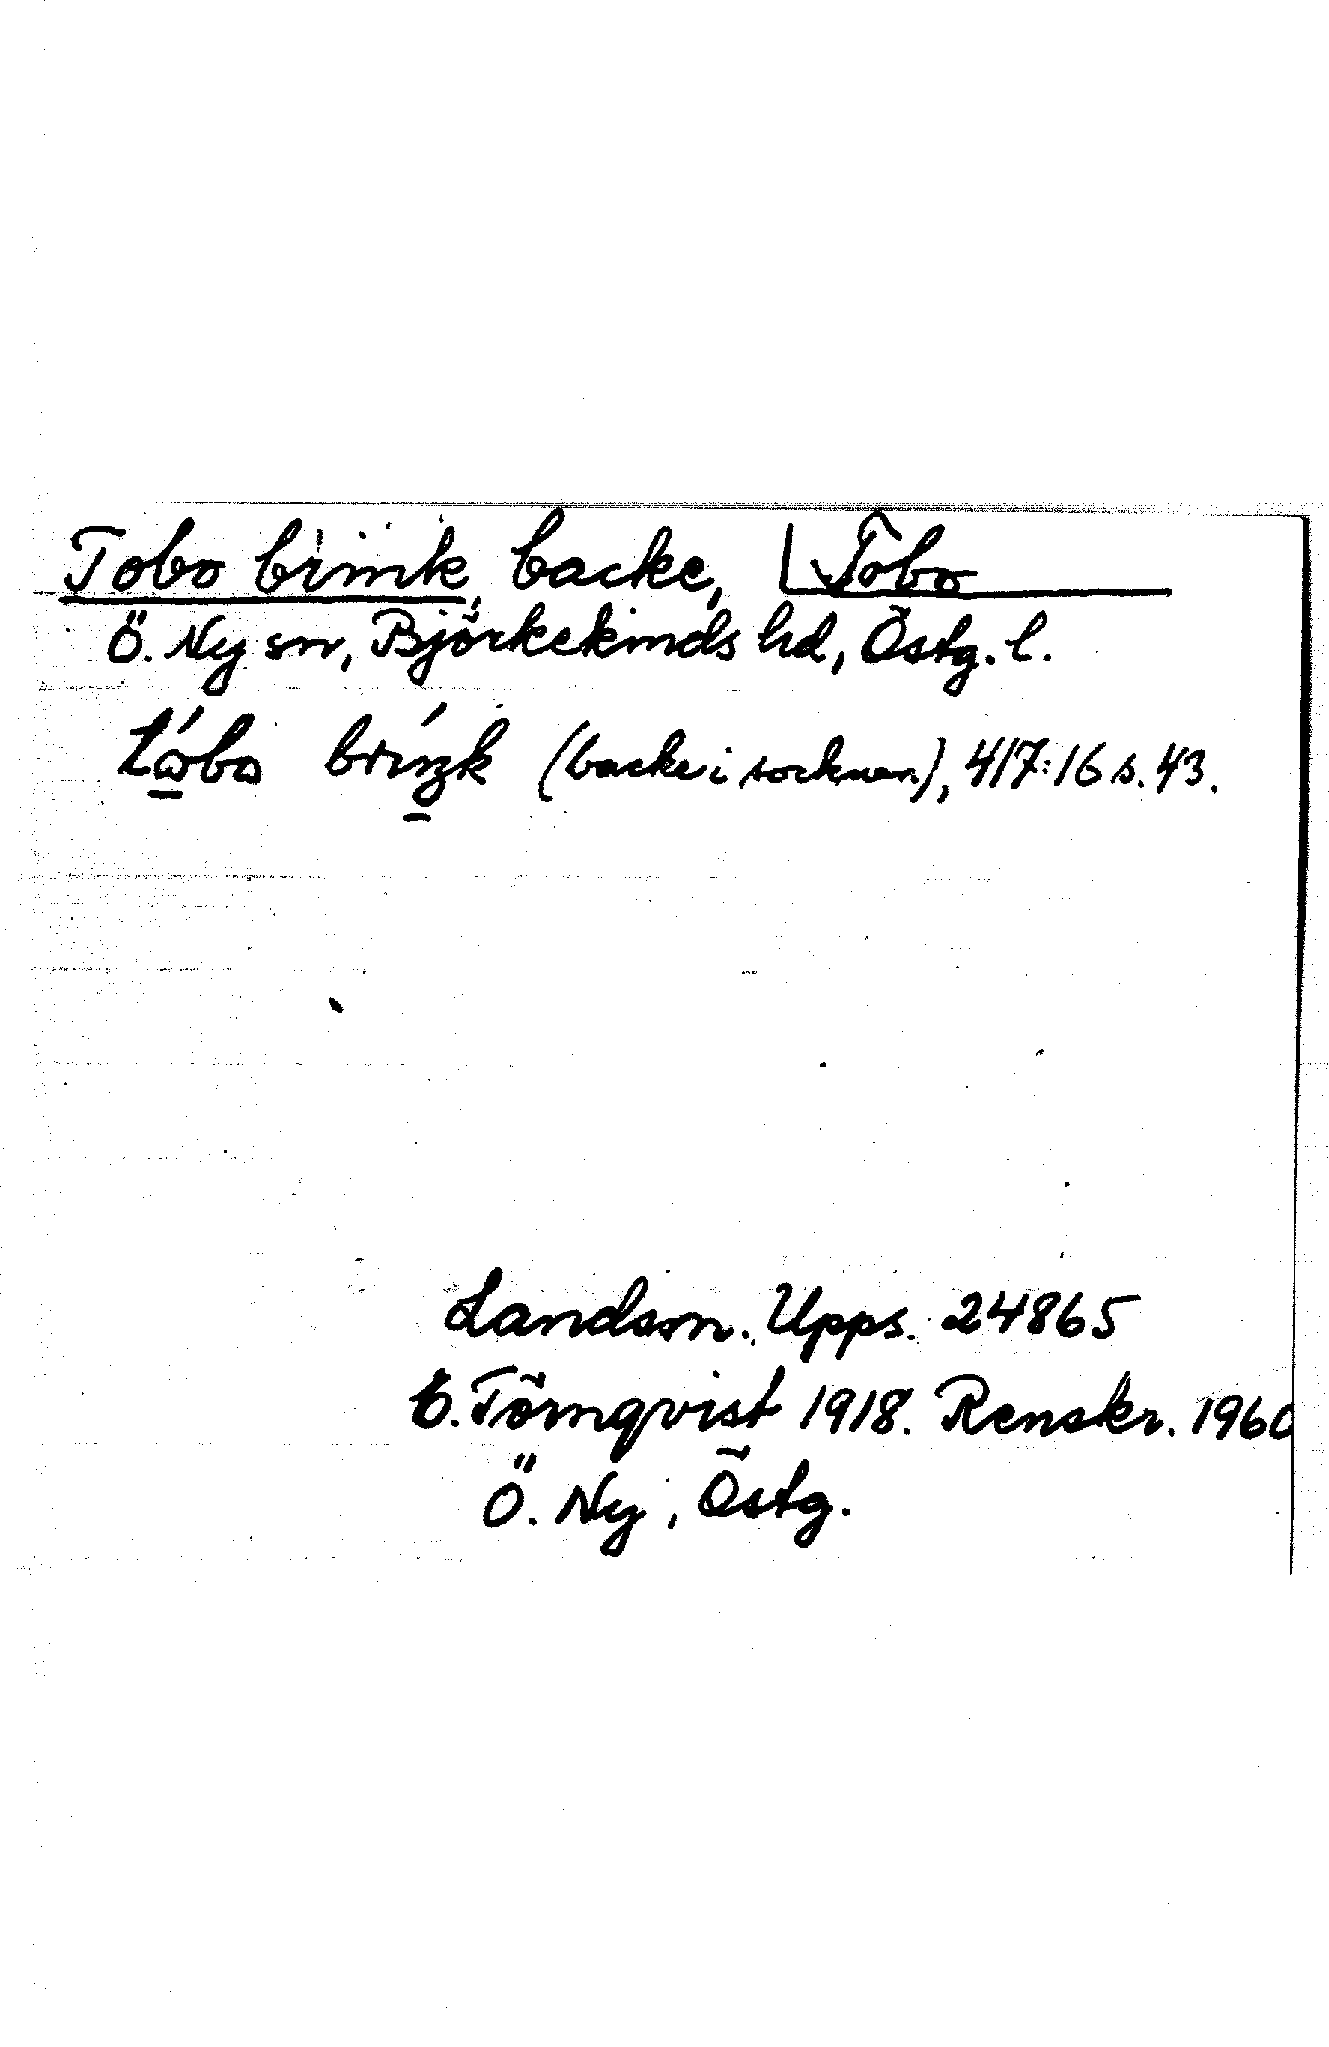 Tobo brink, backe, Tobo
Ö. Ny sn, Björkekinds hd, Östg. l.
tóbo bríŋk (backe i socknen), 417:16 s. 43.
Landsm. Upps. 24865
E. Törnqvist 1918. Renskr. 1960
Ö. Ny, Östg.